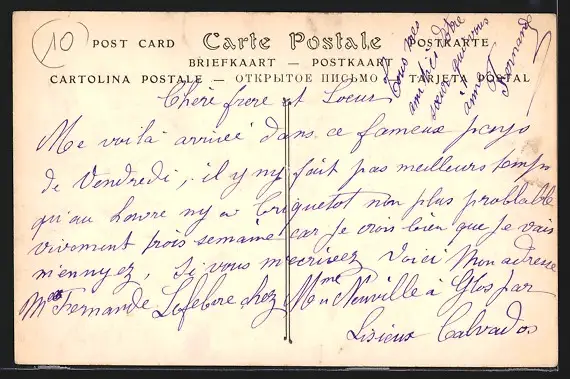 10
POST CARD Carte Postale POSTKARTE
BRIEFKAART — POSTKAART
CARTOLINA POSTALE — ОТКРЫТОЕ ПИСЬМО — TARJETA POSTAL
Tous mes
amitiés
soeur qui vous
aime
Fernande
Chère frere et Soeur
Me voilà arrivée dans ce fameux pays
de Vendredi, il y ny fait pas meilleurs temps
qu'au Havre ny a Criquetot non plus problable
vivement trois semaine car je vois bien que je vais
m'ennyez, Si vous m'ecrivez Voici Mon adresse
Mlle Fernande Lefebvre chez Mme Neuville à Glos par
Lisieux Calvados